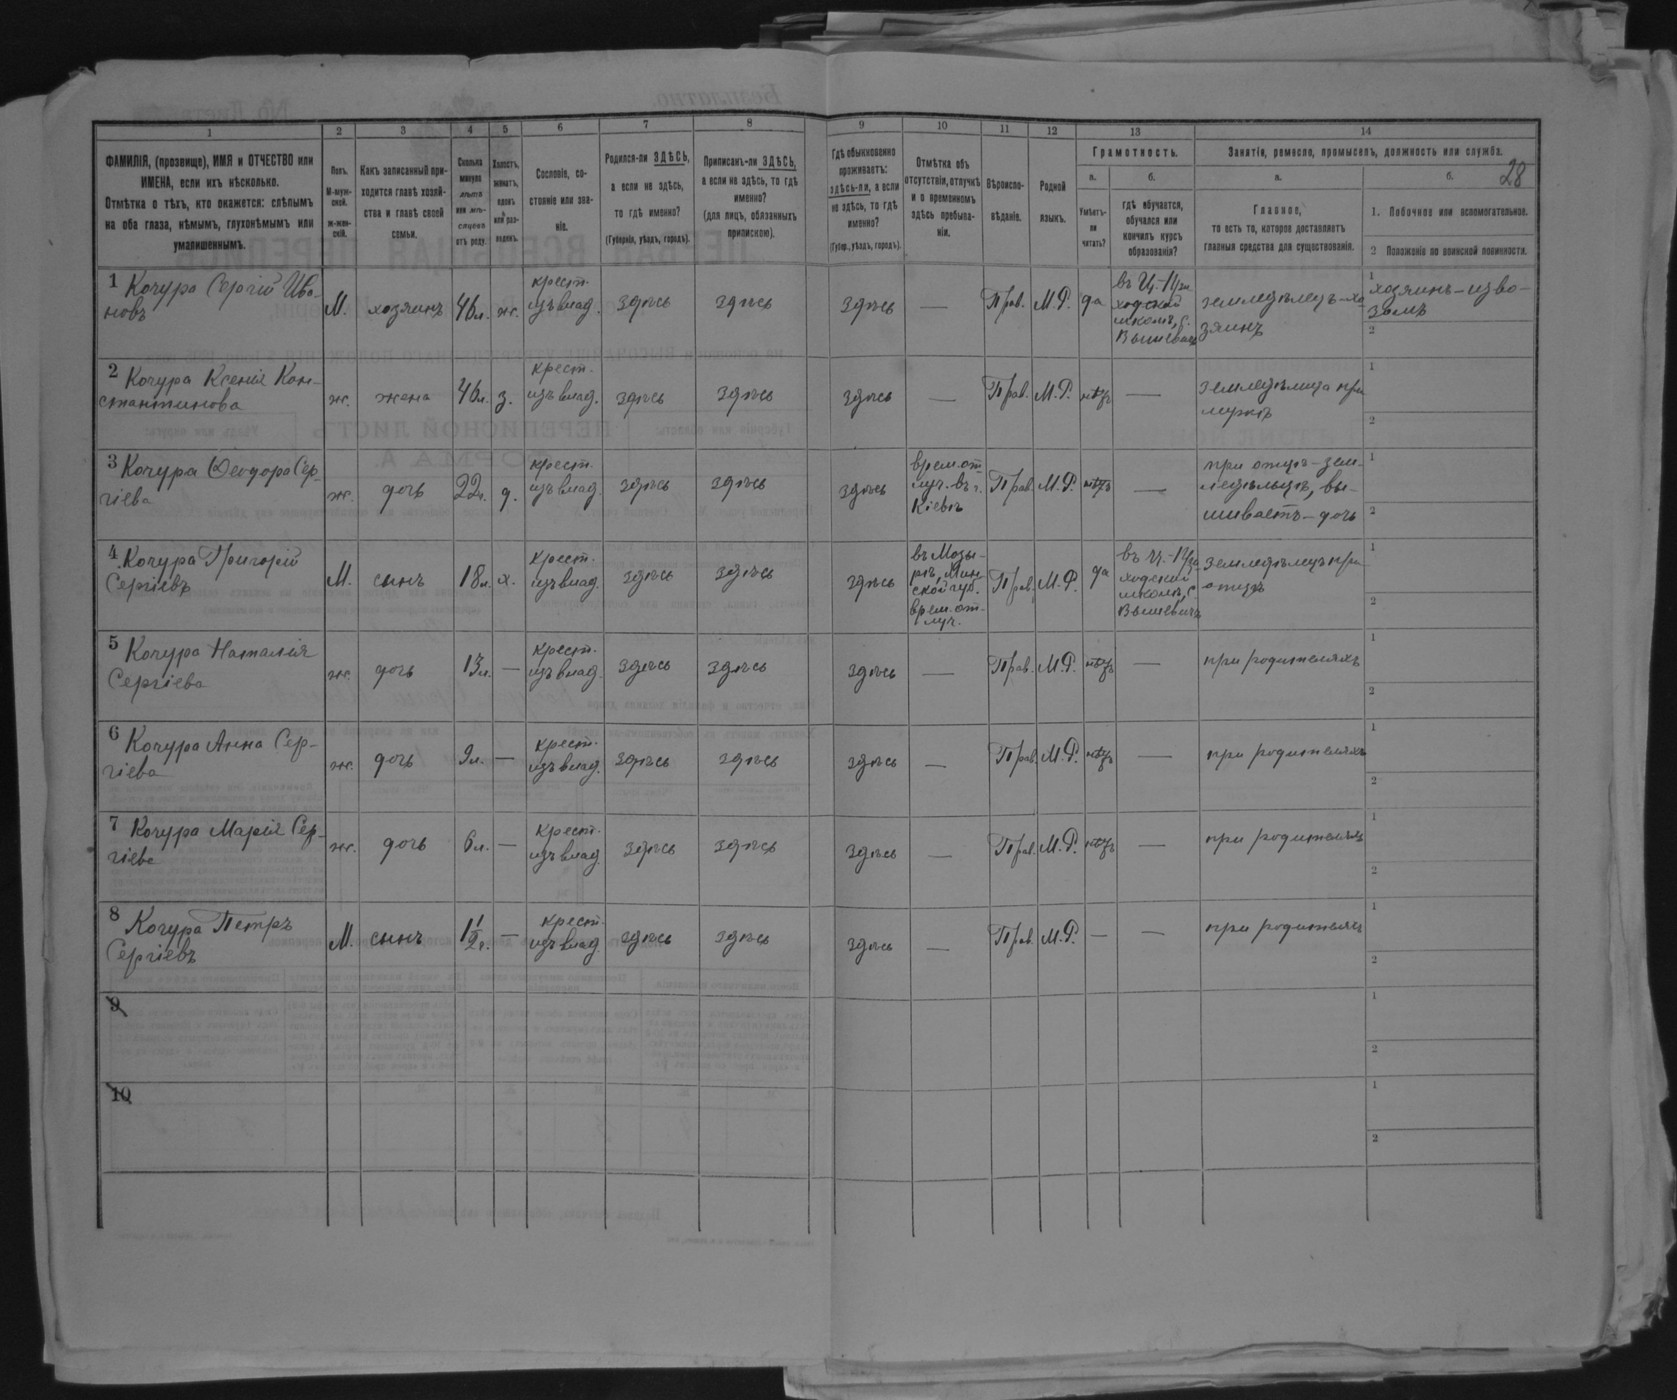 1 2 3 4 5 6 7 8 9 10 11 12 13 14
28
ФАМИЛІЯ, (прозвище), ИМЯ и ОТЧЕСТВО или
ИМЕНА, если ихъ нѣсколько.
Отмѣтка о тѣхъ, кто окажется: слѣпымъ
на оба глаза, нѣмымъ, глухонѣмымъ или
умалишеннымъ.
Полъ.
М-муж-
ской.
ж-жен-
скій.
Какъ записанный при-
ходится главѣ хозяй-
ства и главѣ своей
семьи.
Сколько
минуло
лѣтъ
или мѣ-
сяцевъ
отъ роду.
Холостъ,
женатъ,
вдовъ
или раз-
веденъ.
Сословіе, со-
стояніе или зва-
ніе.
Родился-ли ЗДѢСЬ,
а если не здѣсь,
то гдѣ именно?
(Губернія, уѣздъ, городъ).
Приписанъ-ли ЗДѢСЬ,
а если не здѣсь, то гдѣ
именно?
(для лицъ, обязанныхъ
припискою).
Гдѣ обыкновенно
проживаетъ:
здѣсь-ли, а если
не здѣсь, то гдѣ
именно?
(Губер., уѣздъ, городъ).
Отмѣтка объ
отсутствіи, отлучкѣ
и о временномъ
здѣсь пребыва-
ніи.
Вѣроиспо-
вѣданіе.
Родной
языкъ.
Грамотность.
а. б.
Умѣетъ-
ли
читать?
гдѣ обучается,
обучался или
кончилъ курсъ
образованія?
Занятіе, ремесло, промыселъ, должность или служба.
а. б.
Главное,
то есть то, которое доставляетъ
главныя средства для существованія.
1. Побочное или вспомогательное.
2 Положеніе по воинской повинности.
1 Кочура Сергій Ива-
новъ
М. хозяинъ 46л. ж.
крест.
изъ влад.
здѣсь здѣсь здѣсь — Прав. М.Р. да
въ Ц.-При
ходской
школѣ, с.
земледѣлецъ-хо
зяинъ
1
хозяинъ-изво-
зомъ
2
2 Кочура Ксенія Кон-
стантинова
ж. жена 46л. з.
крест.
изъ влад.
здѣсь здѣсь здѣсь — Прав. М.Р. нѣтъ —
земледѣлица при
мужѣ
1
2
3 Кочура Ѳеодора Сер-
гіева
ж. дочь 22л. д.
крест.
изъ влад.
здѣсь здѣсь здѣсь
врем. от
луч. въ г.
Кіевѣ
Прав. М.Р. нѣтъ —
при отцѣ-зем-
ледѣльцѣ, вы-
шиваетъ-дочь
1
2
4 Кочура Григорій
Сергіевъ
М. сынъ 18л. х.
крест.
изъ влад.
здѣсь здѣсь здѣсь
въ Мозы-
рѣ, Мин
ской губ.
врем. от-
луч.
Прав. М.Р. да
въ Ц.-При
ходской
школѣ, с.
Вышевичъ
земледѣлецъ при
отцѣ
1
2
5 Кочура Наталія
Сергіева
ж. дочь 13л. —
крест.
изъ влад.
здѣсь здѣсь здѣсь — Прав. М.Р. нѣтъ —
при родителяхъ
1
2
6 Кочура Анна Сер-
гіева
ж. дочь 9л. —
крест.
изъ влад.
здѣсь здѣсь здѣсь — Прав. М.Р. нѣтъ —
при родителяхъ
1
2
7 Кочура Марія Сер-
гіева
ж. дочь 6л. —
крест.
изъ влад.
здѣсь здѣсь здѣсь — Прав. М.Р. нѣтъ —
при родителяхъ
1
2
8 Кочура Петръ
Сергіевъ
М. сынъ 1 1/2 г. —
крест.
изъ влад.
здѣсь здѣсь здѣсь — Прав. М.Р. — —
при родителяхъ
1
2
9
1
2
10
1
2